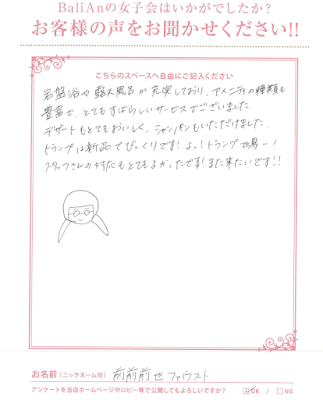 BaliAnの女子会はいかがでしたか?
お客様の声をお聞かせください!!
こちらのスペースへ自由にご記入ください
岩盤浴や露天風呂が充実しており、アメニティの種類も
豊富で、とてもすばらしいサービスでございました。
デザートもとてもおいしく、シャンパンもいただけました。
トランプは新品でびっくりです!よっ!トランプ
スタッフさんの対応もとてもよかったです!また来たいです!!
お名前(ニックネーム可) 前前前世 ファウスト
アンケートを当店ホームページやロビー等で公開してもよろしいですか? ☑OK / □NG